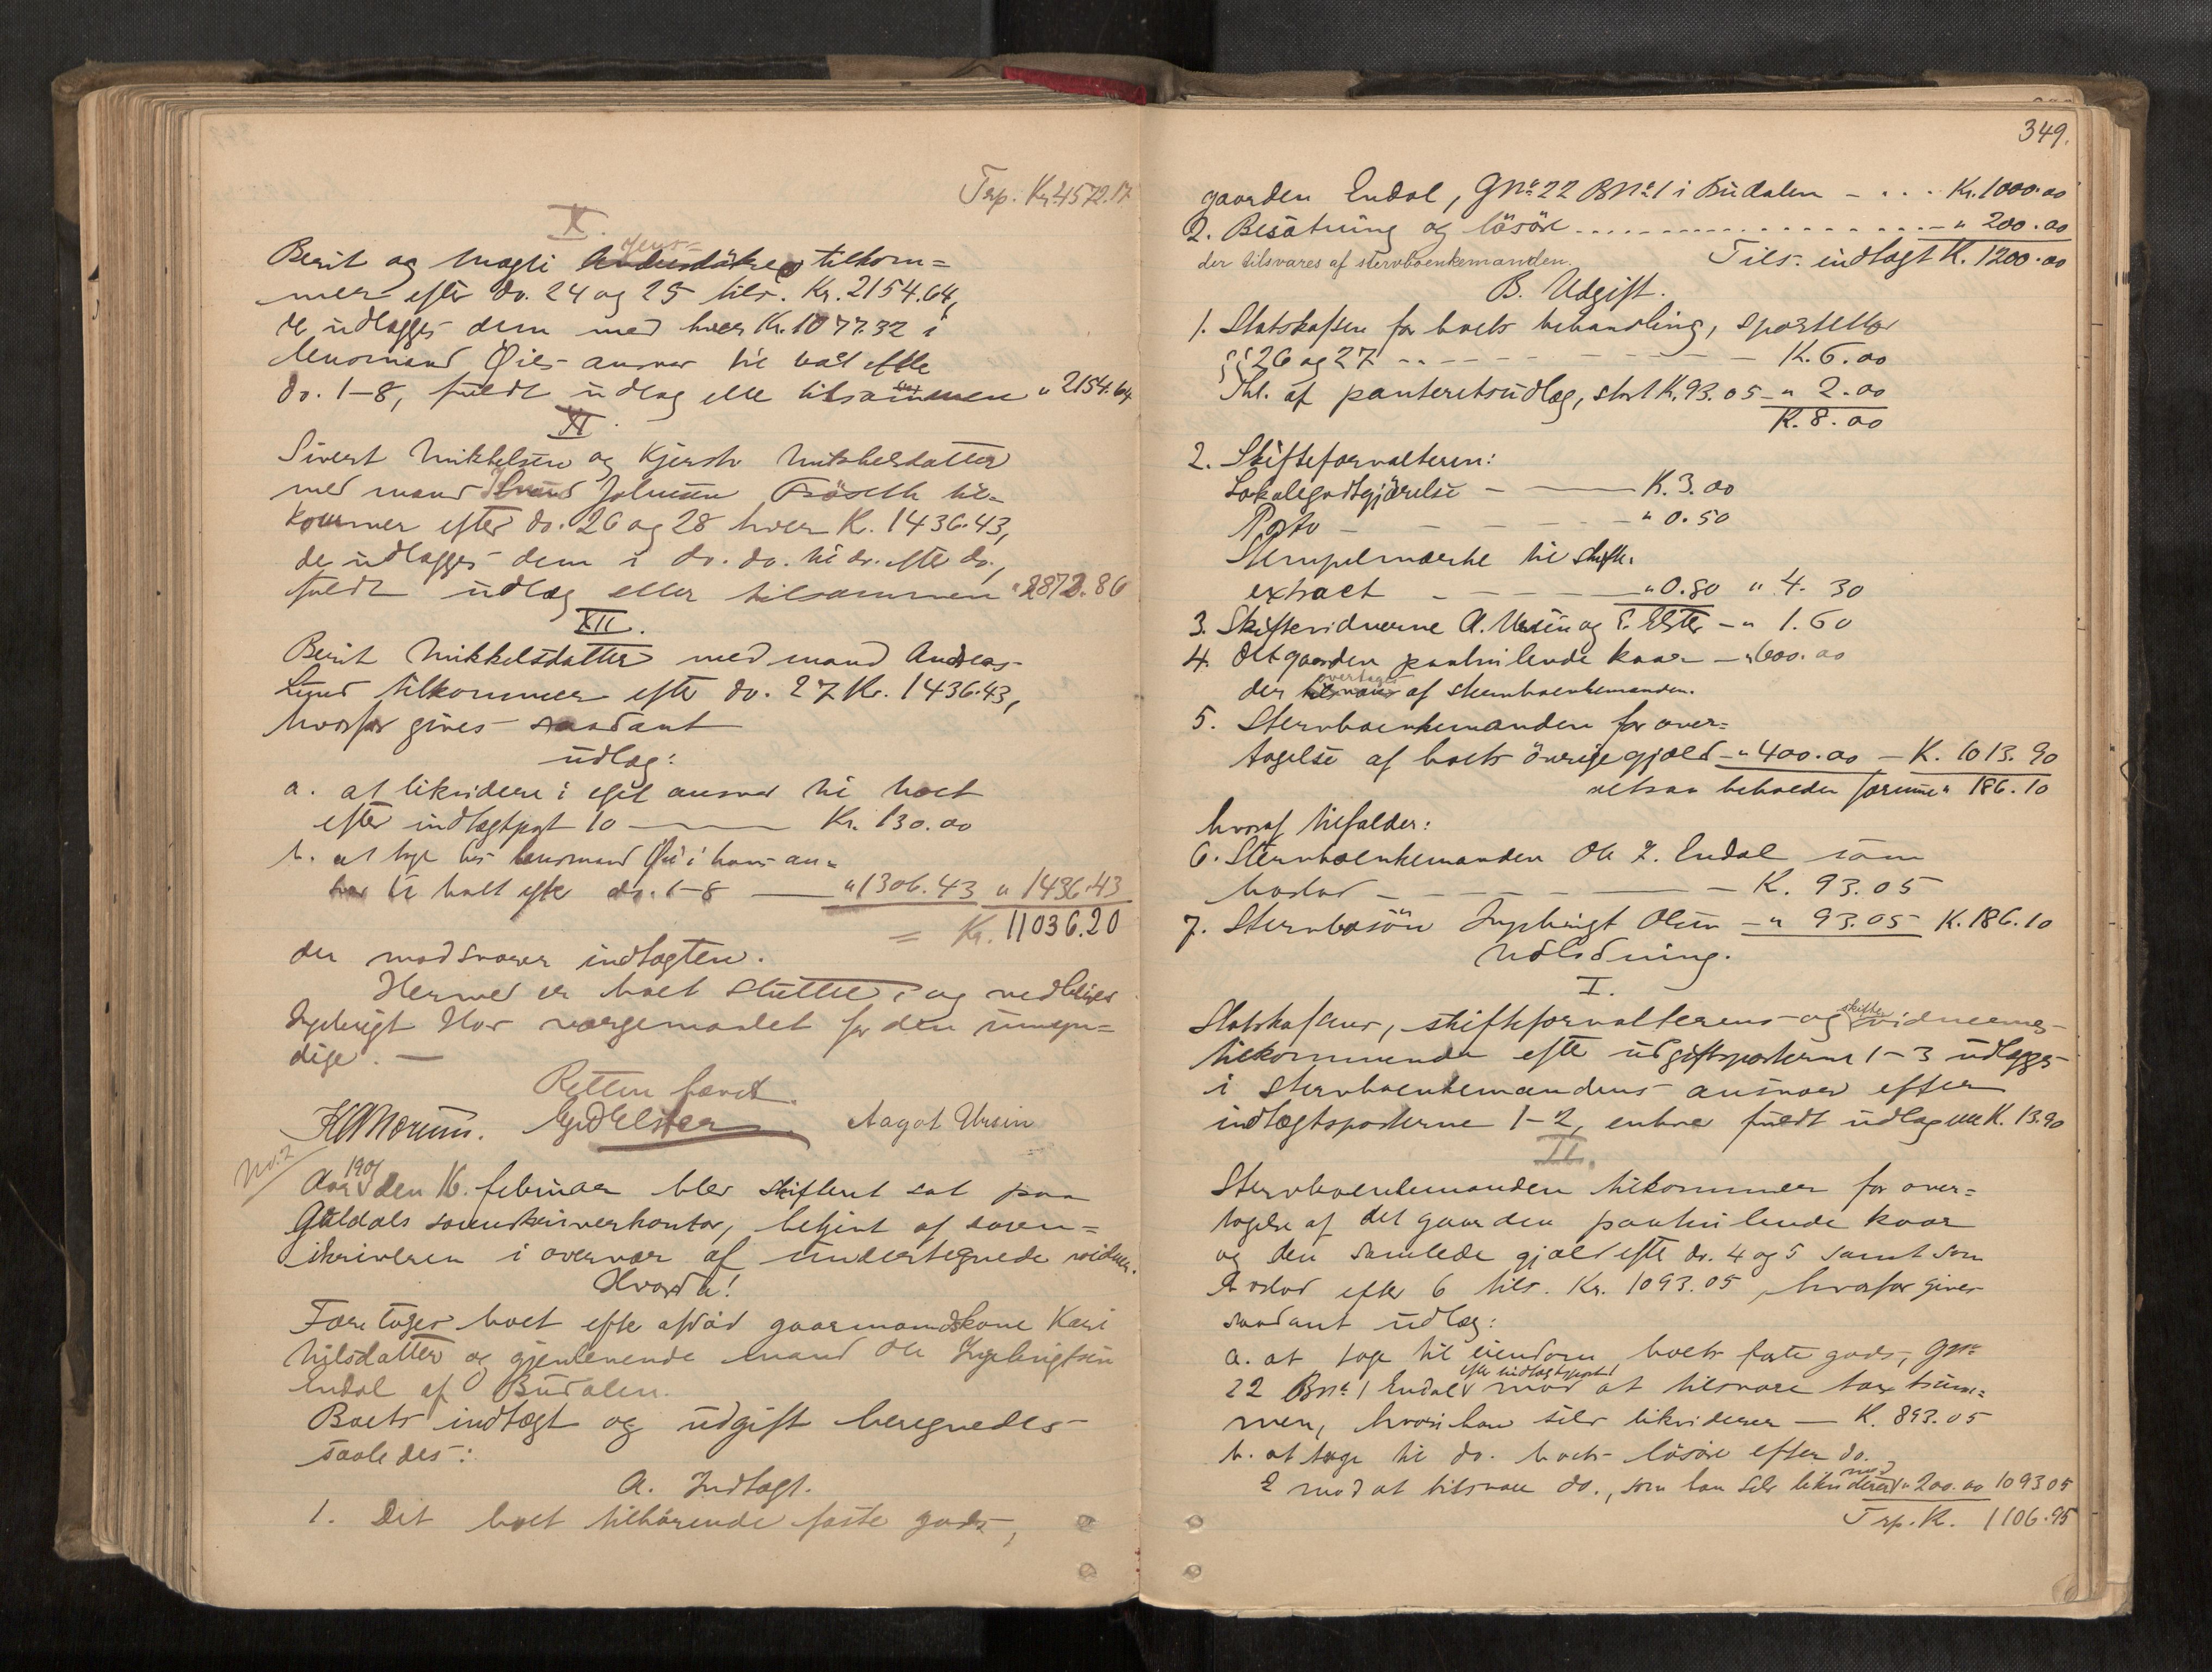 Trp. Kr. 4572.17
X.
Berit og Magli Jens- Andersdötre tilkom=
mer efter do. 24 og 25 tils. Kr. 2154.64,
der udlægges dem med hver Kr. 1077.32 i
lensmand Øies ansvar til boet efter
do. 1-8, fuldt udlæg eller tilsammen " 2154.64
XI.
Sivert Mikkelsen og Kjersti Mikkelsdatter
med mand Johnsen til=
kommer efter do. 26 og 28 hver Kr. 1436.43,
der udlægges dem i do. do. til do. efter do.,
fuldt udlæg eller tilsammen " 2872.86
XII.
Berit Mikkelsdatter med mand Andreas
Lund tilkommer efter do. 27 Kr. 1436.43,
hvorfor gives saadant
udlæg:
a. at likvidere i eget ansvar til boet
efter indtægtpost 10 — Kr. 130.00
b. at tage hos lensmand Øie i hans an=
svar til boet efter do. 1-8 — " 1306.43 " 1436.43
= Kr. 11036.20
der modsvarer indtægten.
Hermed er boet sluttet og vedbliver
Ingebrigt Hov værgemaalet for den umyn=
dige. —
Retten hævet.
Elster Aagot Ursin
No. 2
Aar 1901 den 16. februar blev skifteret sat paa
Guldals sorenskriverkontor, betjent af soren=
skriveren i overvær af undertegnede vidner.
Hvorda!
Foretoges boet efter afdöd gaarmandskone Kari
Nilsdatter og gjenlevende mand Ole Ingebrigtsen
Endal af Budalen.
Boets indtægt og udgift beregnedes
saaledes:
A. Indtægt.
1. Det boet tilhörende faste gods,
349.
gaarden Endal, Gno. 22 Bno. 1 i Budalen - . . . Kr. 1000.00
2. Besætning og lösöre . . . . . . . . - " 200.00
der tilsvares af stervboenkemanden. Tils. indtægt K. 1200.00
B. Udgift.
1. Statskassen for boets behandling, sportelloo
§§ 26 og 27 - - - - - - - K. 6.00
Thl. af panteretsudlæg, stort K. 93.05 - " 2.00
K. 8.00
2. Skifteforvalteren:
Lokalegodtgjörelse - — K. 3.00
Porto - - - - - - " 0.50
Stempelmærke til skifte-
extract - - - - — " 0.80 " 4.30
3. Skiftevidnerne A. Ursin og E. Elster - " 1.60
4. Det gaarden paahvilende kaar - " 600.00
der tilsvares overtages af stervboenkemanden.
5. Stervboenkemanden for over=
tagelse af boets övrige gjæld - " 400.00 - K. 1013.90
altsaa beholden formue " 186.10
hvoraf tilfalder:
6. Stervboenkemanden Ole I. Endal som
boslod - - - - — - K. 93.05
7. Stervbosön Ingebrigt Olsen - " 93.05 K. 186.10
Udlodning.
I.
Statskassens, skifteforvalterens og skiftevidnernes
tilkommende efter udgiftsposterne 1-3 udlægges
i stervboenkemandens ansvar efter
indtægtsposterne 1-2, enhver fuldt udlæg med K. 13.90
II.
Stervboenkemanden tilkommer for over=
tagelse af det gaarden paahvilende kaar
og den samlede gjæld efter do. 4 og 5 samt som
boslod efter 6 tils. Kr. 1093.05, hvorfor gives
saadant udlæg:
a. at tage til eiendom boets faste gods, Gno.
22 Bno. 1 Endal efter indtægtspost 1 mod at tilsvare taxtsum=
men, hvori han selv likviderer — K. 893.05
b. at tage til do. boets lösöre efter do.
2 mod at tilsvare do., som han selv likviderer med " 200.00 1093 05
Trp. K. 1106.95